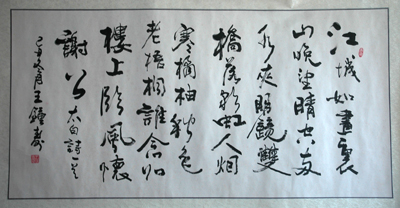 江城如畫裏
山晚望晴空兩
水夾明鏡雙
橋落彩虹人烟
寒橘柚秋色
老梧桐誰念北
樓上臨風懷
謝公 太白詩一首
己丑冬月王鐘壽